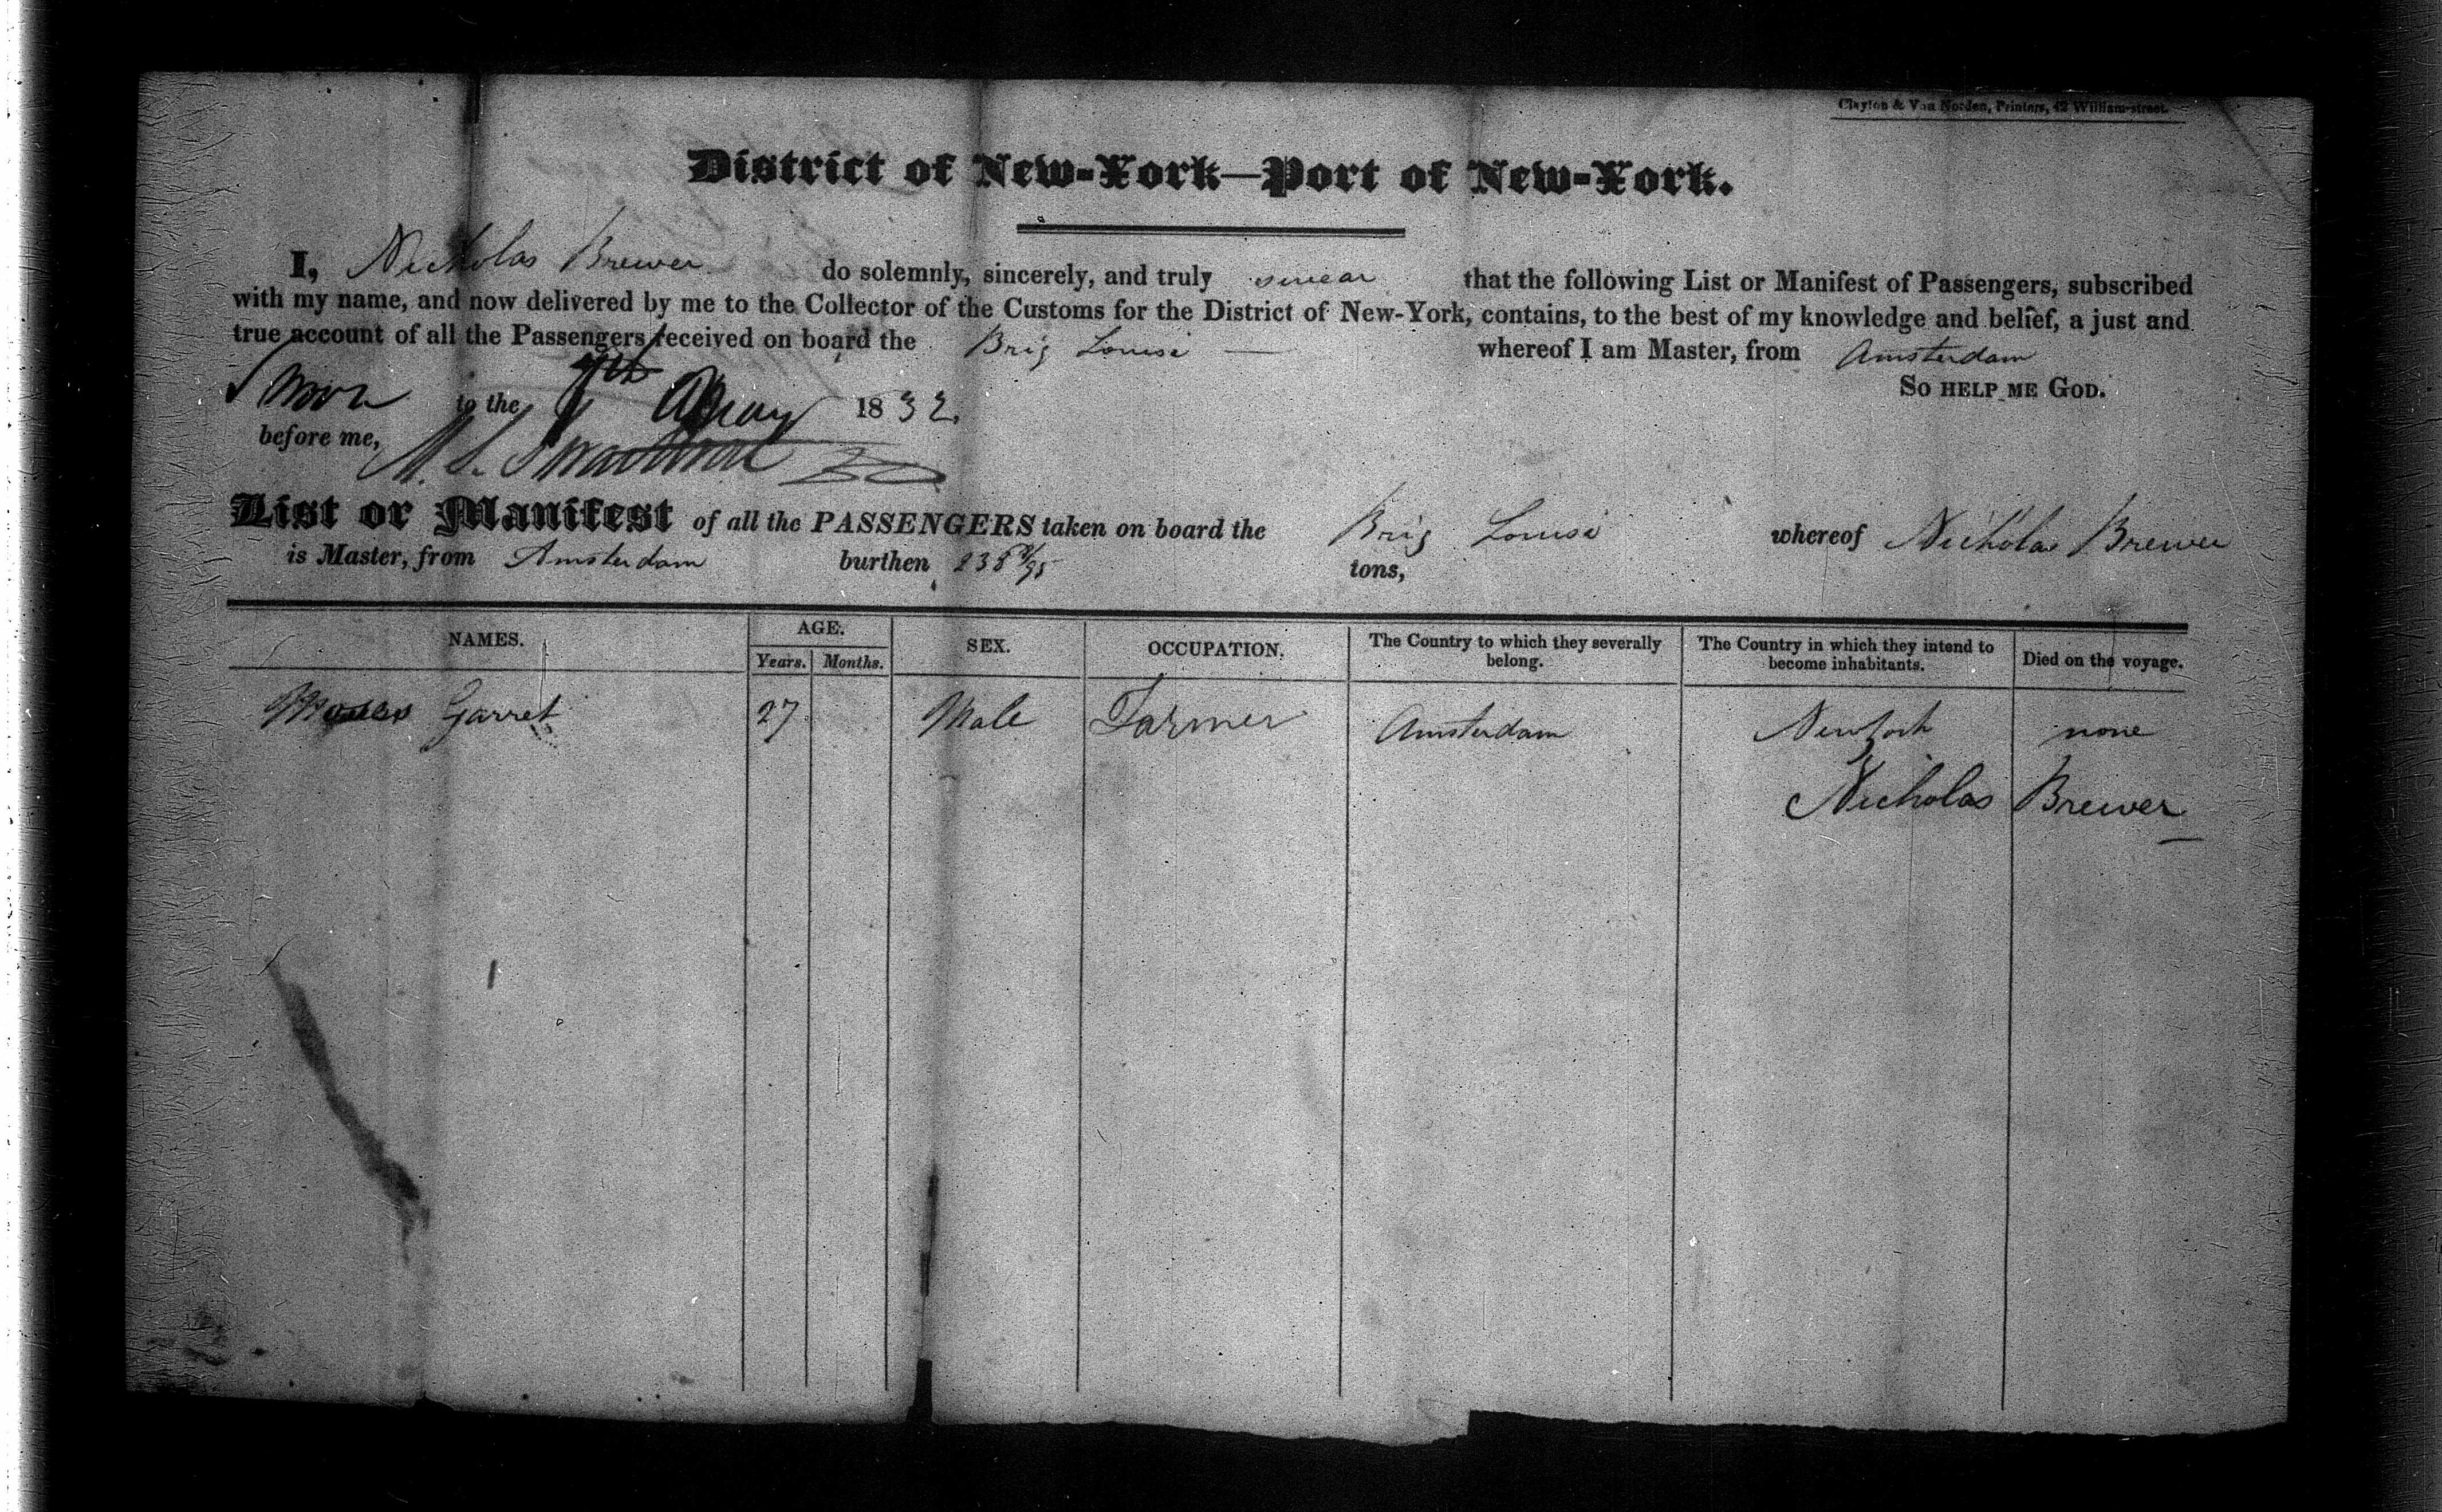 Clayton & Van Norden, Printers, 42 William-street.
District of New-York—Port of New-York.
I, Nicholas Brewer do solemnly, sincerely, and truly swear that the following List or Manifest of Passengers, subscribed
with my name, and now delivered by me to the Collector of the Customs for the District of New-York, contains, to the best of my knowledge and belief, a just and
true account of all the Passengers received on board the Brig Louisa — whereof I am Master, from Amsterdam
So help me God.
Sworn to the May 1832.
before me,
List or Manifest of all the PASSENGERS taken on board the Brig Louisa whereof Nicholas Brewer
is Master, from Amsterdam burthen tons,
NAMES. AGE. SEX. OCCUPATION. The Country to which they severally belong. The Country in which they intend to become inhabitants. Died on the voyage.
Years. Months.
Garret 27 Male Farmer Amsterdam NewYork none
Nicholas Brewer